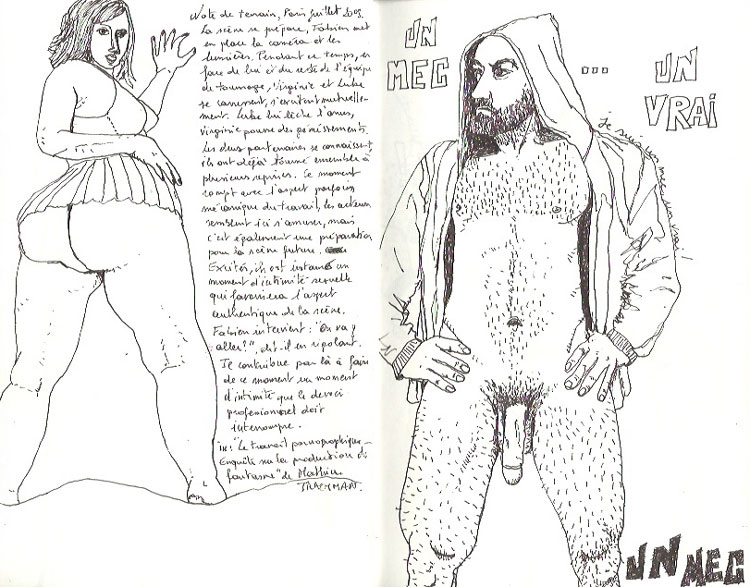 Note de terrain, Paris juillet 2009.
La scène se prépare, Fabien met
en place la caméra et les
lumières. Pendant ce temps, en
face de lui et du reste de l'équipe
de tournage, Virginie et Luke
se caressent, s'excitent mutuelle-
ment. Luke lui lèche l'anus,
Virginie pousse des gémissements.
Les deux partenaires se connaissent,
ils ont déjà tourné ensemble à
plusieurs reprises. Ce moment
rompt avec l'aspect parfois
mécanique du travail, les acteurs
semblent ici s'amuser, mais
c'est également une préparation
pour la scène future.
Excités, ils ont instauré un
moment d'intimité sexuelle
qui favorisera l'aspect
authentique de la scène.
Fabien intervient : "On va y
aller ?", dit-il en rigolant.
Je contribue par là à faire
de ce moment un moment
d'intimité que le devoir
professionnel doit
interrompre.
in : "Le travail pornographique -
Enquête sur la production de
fantasme" de Mathieu
TRACHMAN.
UN
MEC
...
UN
VRAI
Je suis un mec, un vrai...
UN MEC